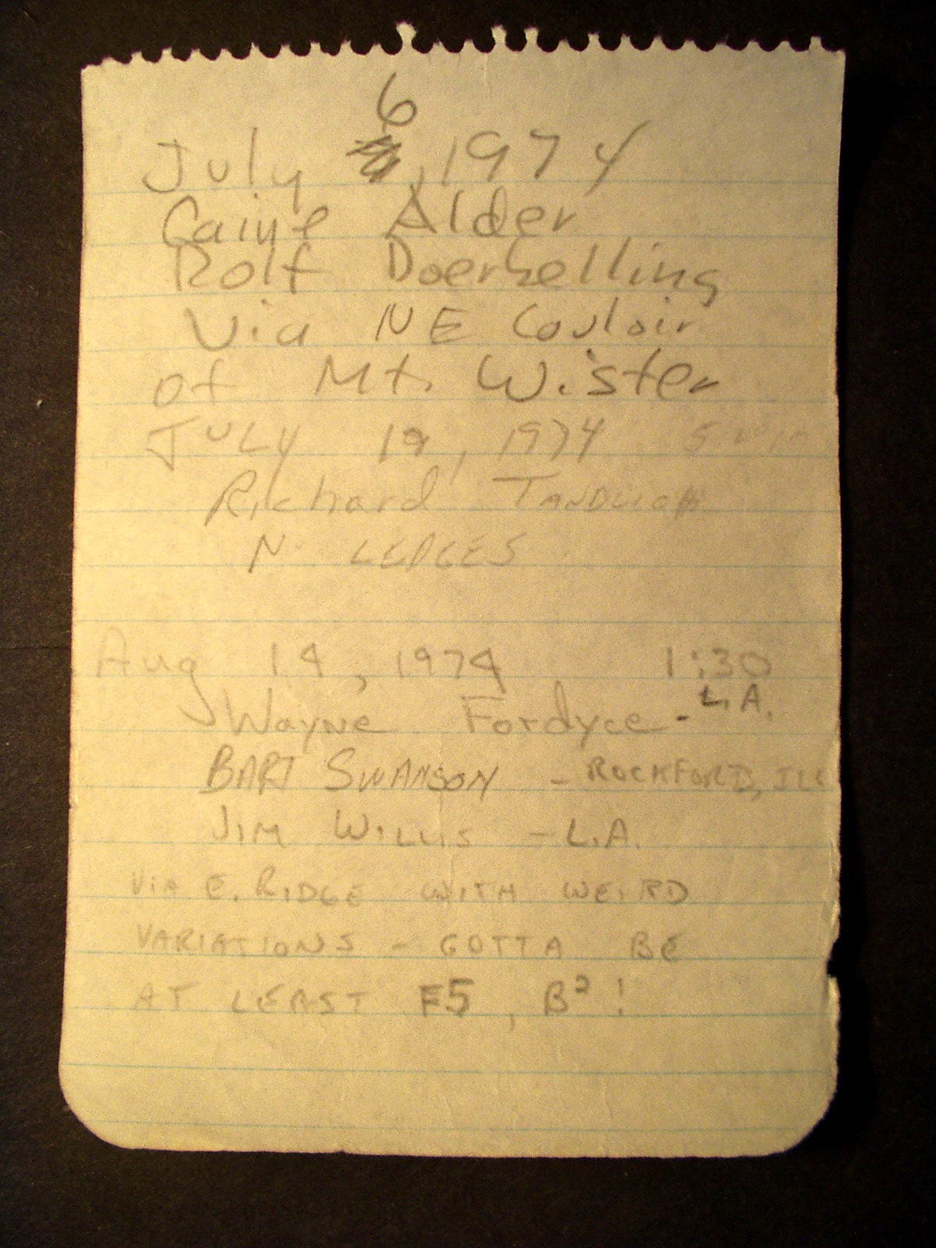 July 6, 1974
Caine Alder
Rolf Doerbelling
Via NE Couloir
of Mt. Wister
JULY 19, 1974
Richard
N. LEDGES
Aug 14, 1974 1:30
Wayne Fordyce - L.A.
BART SWANSON - ROCKFORD, ILL
JIM WILLIS - L.A.
VIA E. RIDGE WITH WEIRD
VARIATIONS - GOTTA BE
AT LEAST F5, B²!